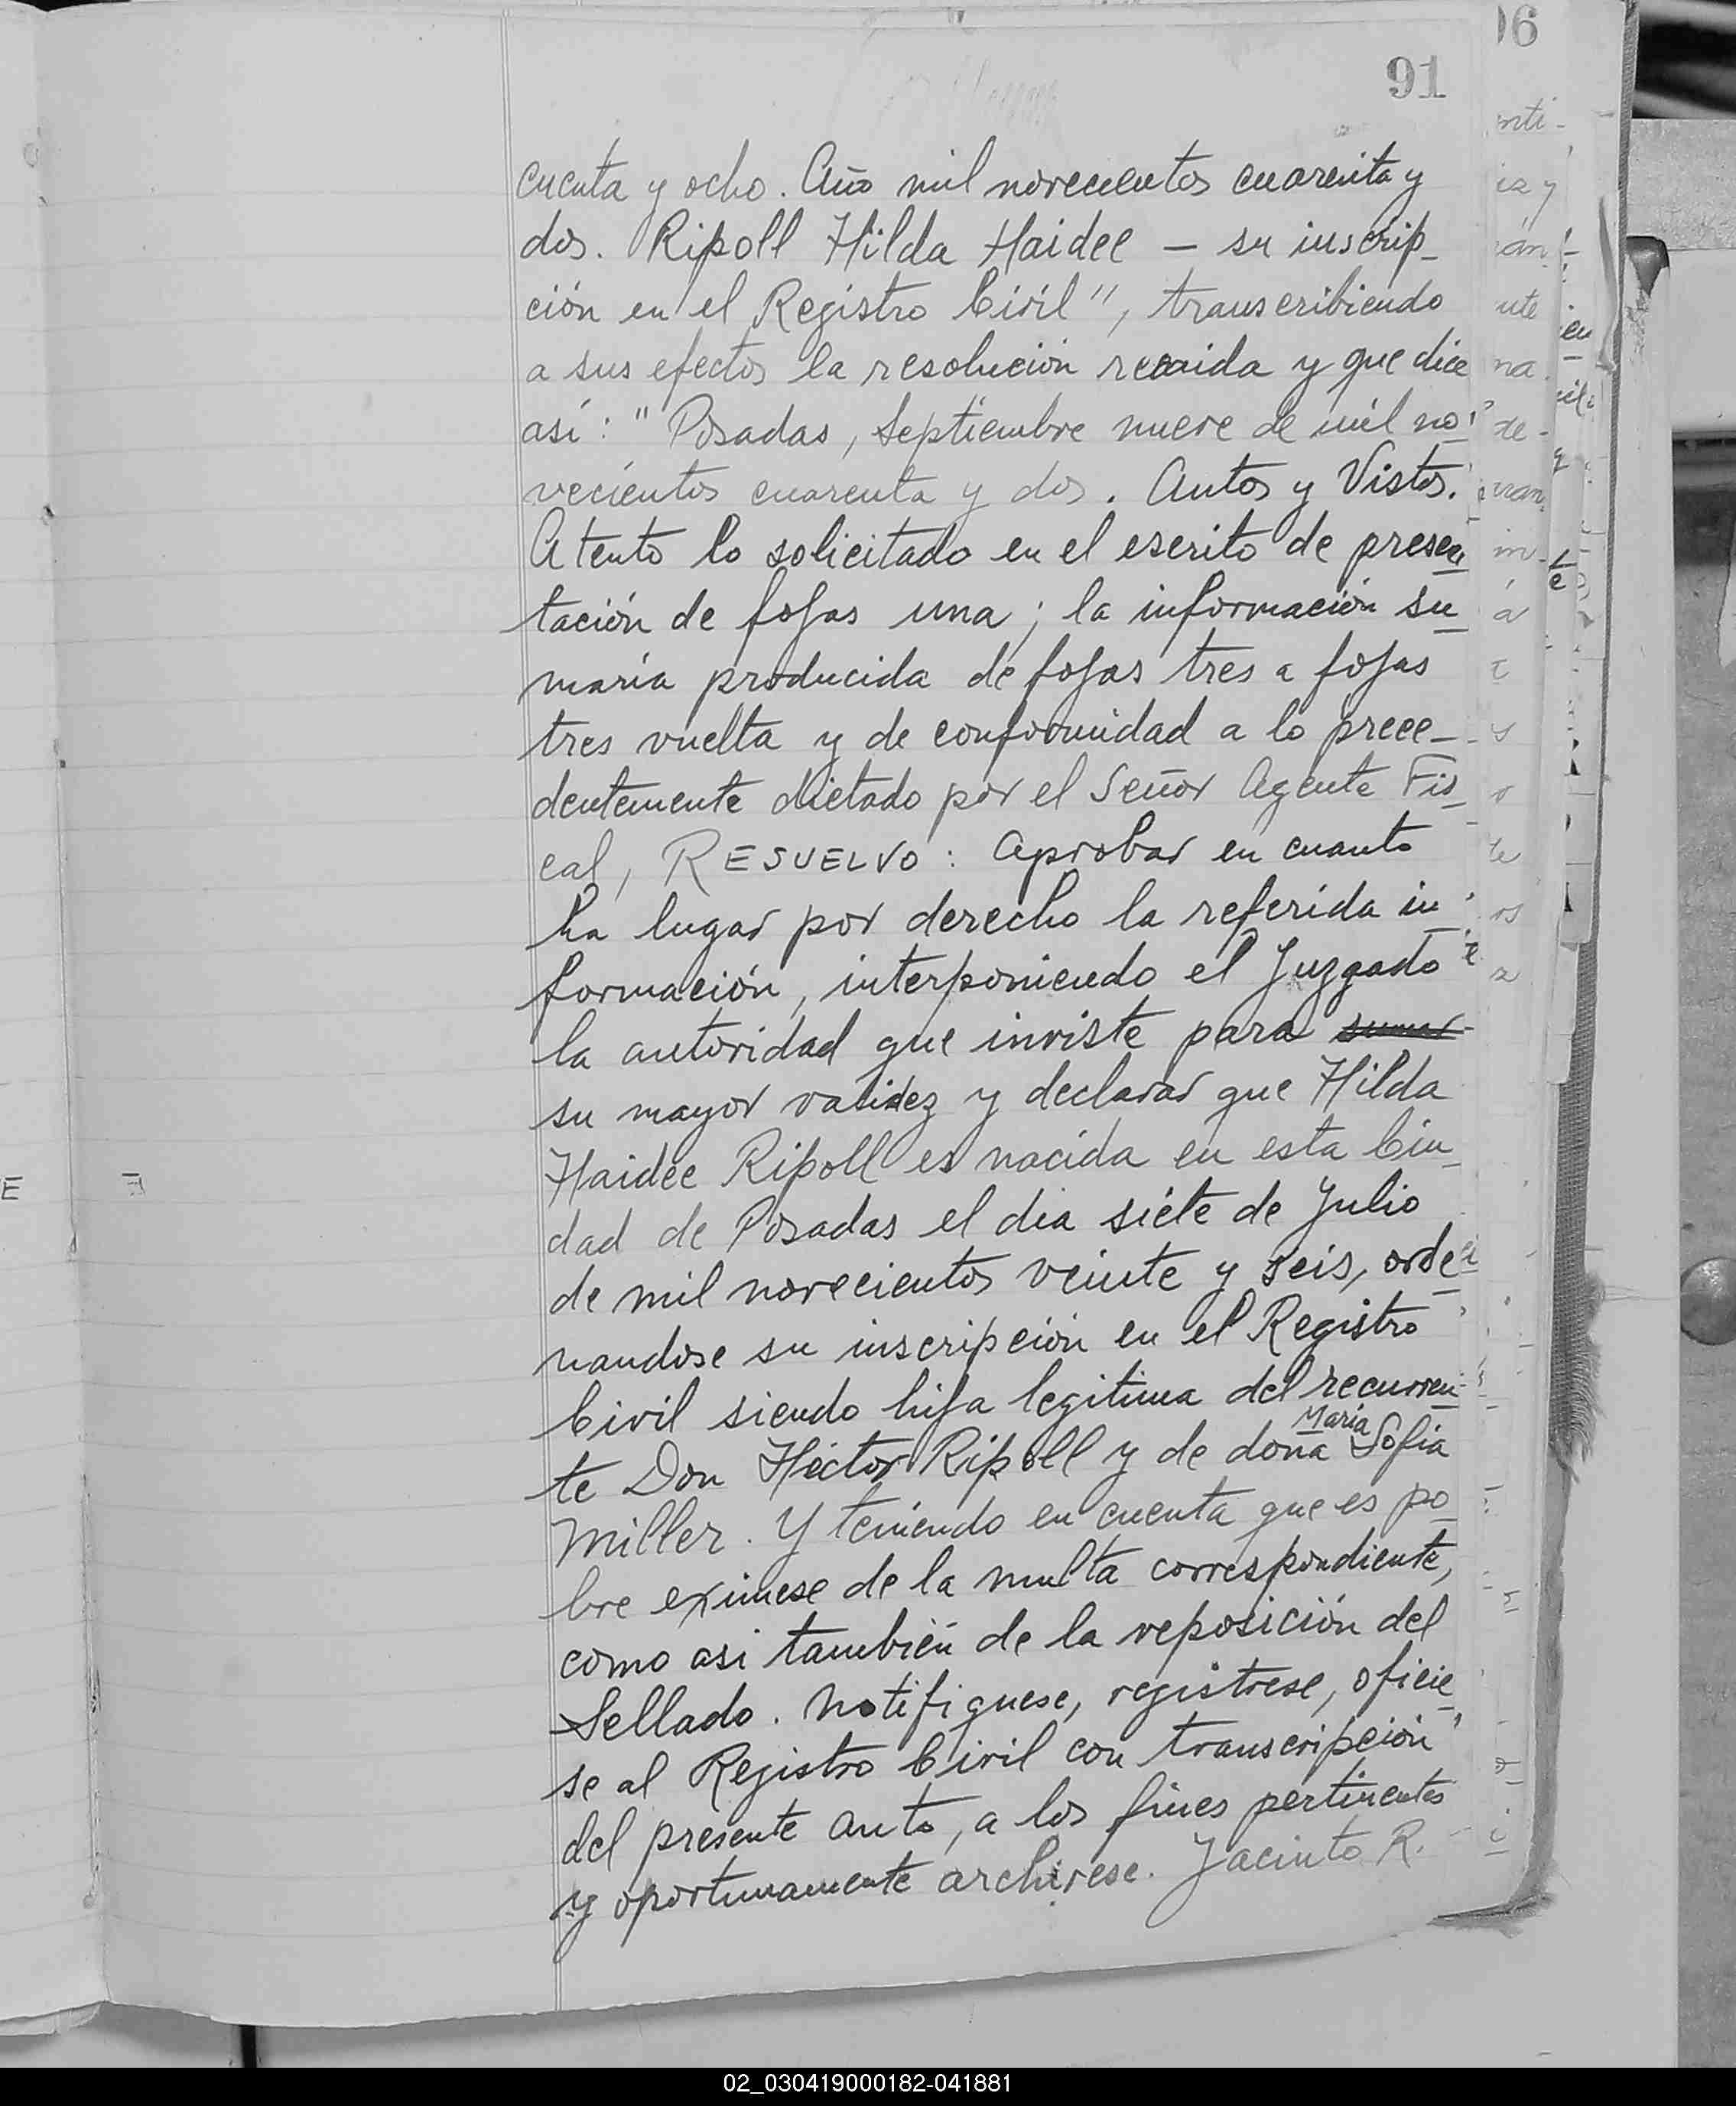 91
cuenta y ocho. Año mil novecientos cuarenta y
dos. Ripoll Hilda Haidee — su inscrip_
ción en el Registro Civil", transcribiendo
a sus efectos la resolución recaida y que dice
así: " Posadas, Septiembre nueve de mil no_
vecientos cuarenta y dos. Autos y Vistos.
Atento lo solicitado en el escrito de presen_
tación de fojas una; la información su_
maria producida de fojas tres a fojas
tres vuelta y de conformidad a lo prece_
dentemente dictado por el Señor Agente Fis_
cal, RESUELVO: Aprobar en cuanto
ha lugar por derecho la referida in_
formación, interponiendo el Juzgado
la autoridad que inviste para
su mayor validez y declarar que Hilda
Haidée Ripoll es nacida en esta Ciu_
dad de Posadas el dia siéte de Julio
de mil novecientos veinte y seis, orde_
nandose su inscripción en el Registro
Civil siendo hija legitima del recurren_
te Don Héctor Ripoll y de doña María Sofia
Miller. Y teniendo en cuenta que es po_
bre eximese de la multa correspondiente,
como asi también de la reposición del
Sellado. Notifiquese, registrese, oficie_
se al Registro Civil con transcripción
del presente auto, a los fines pertinentes
y oportunamente archivese. Jacinto R.
02_030419000182-041881